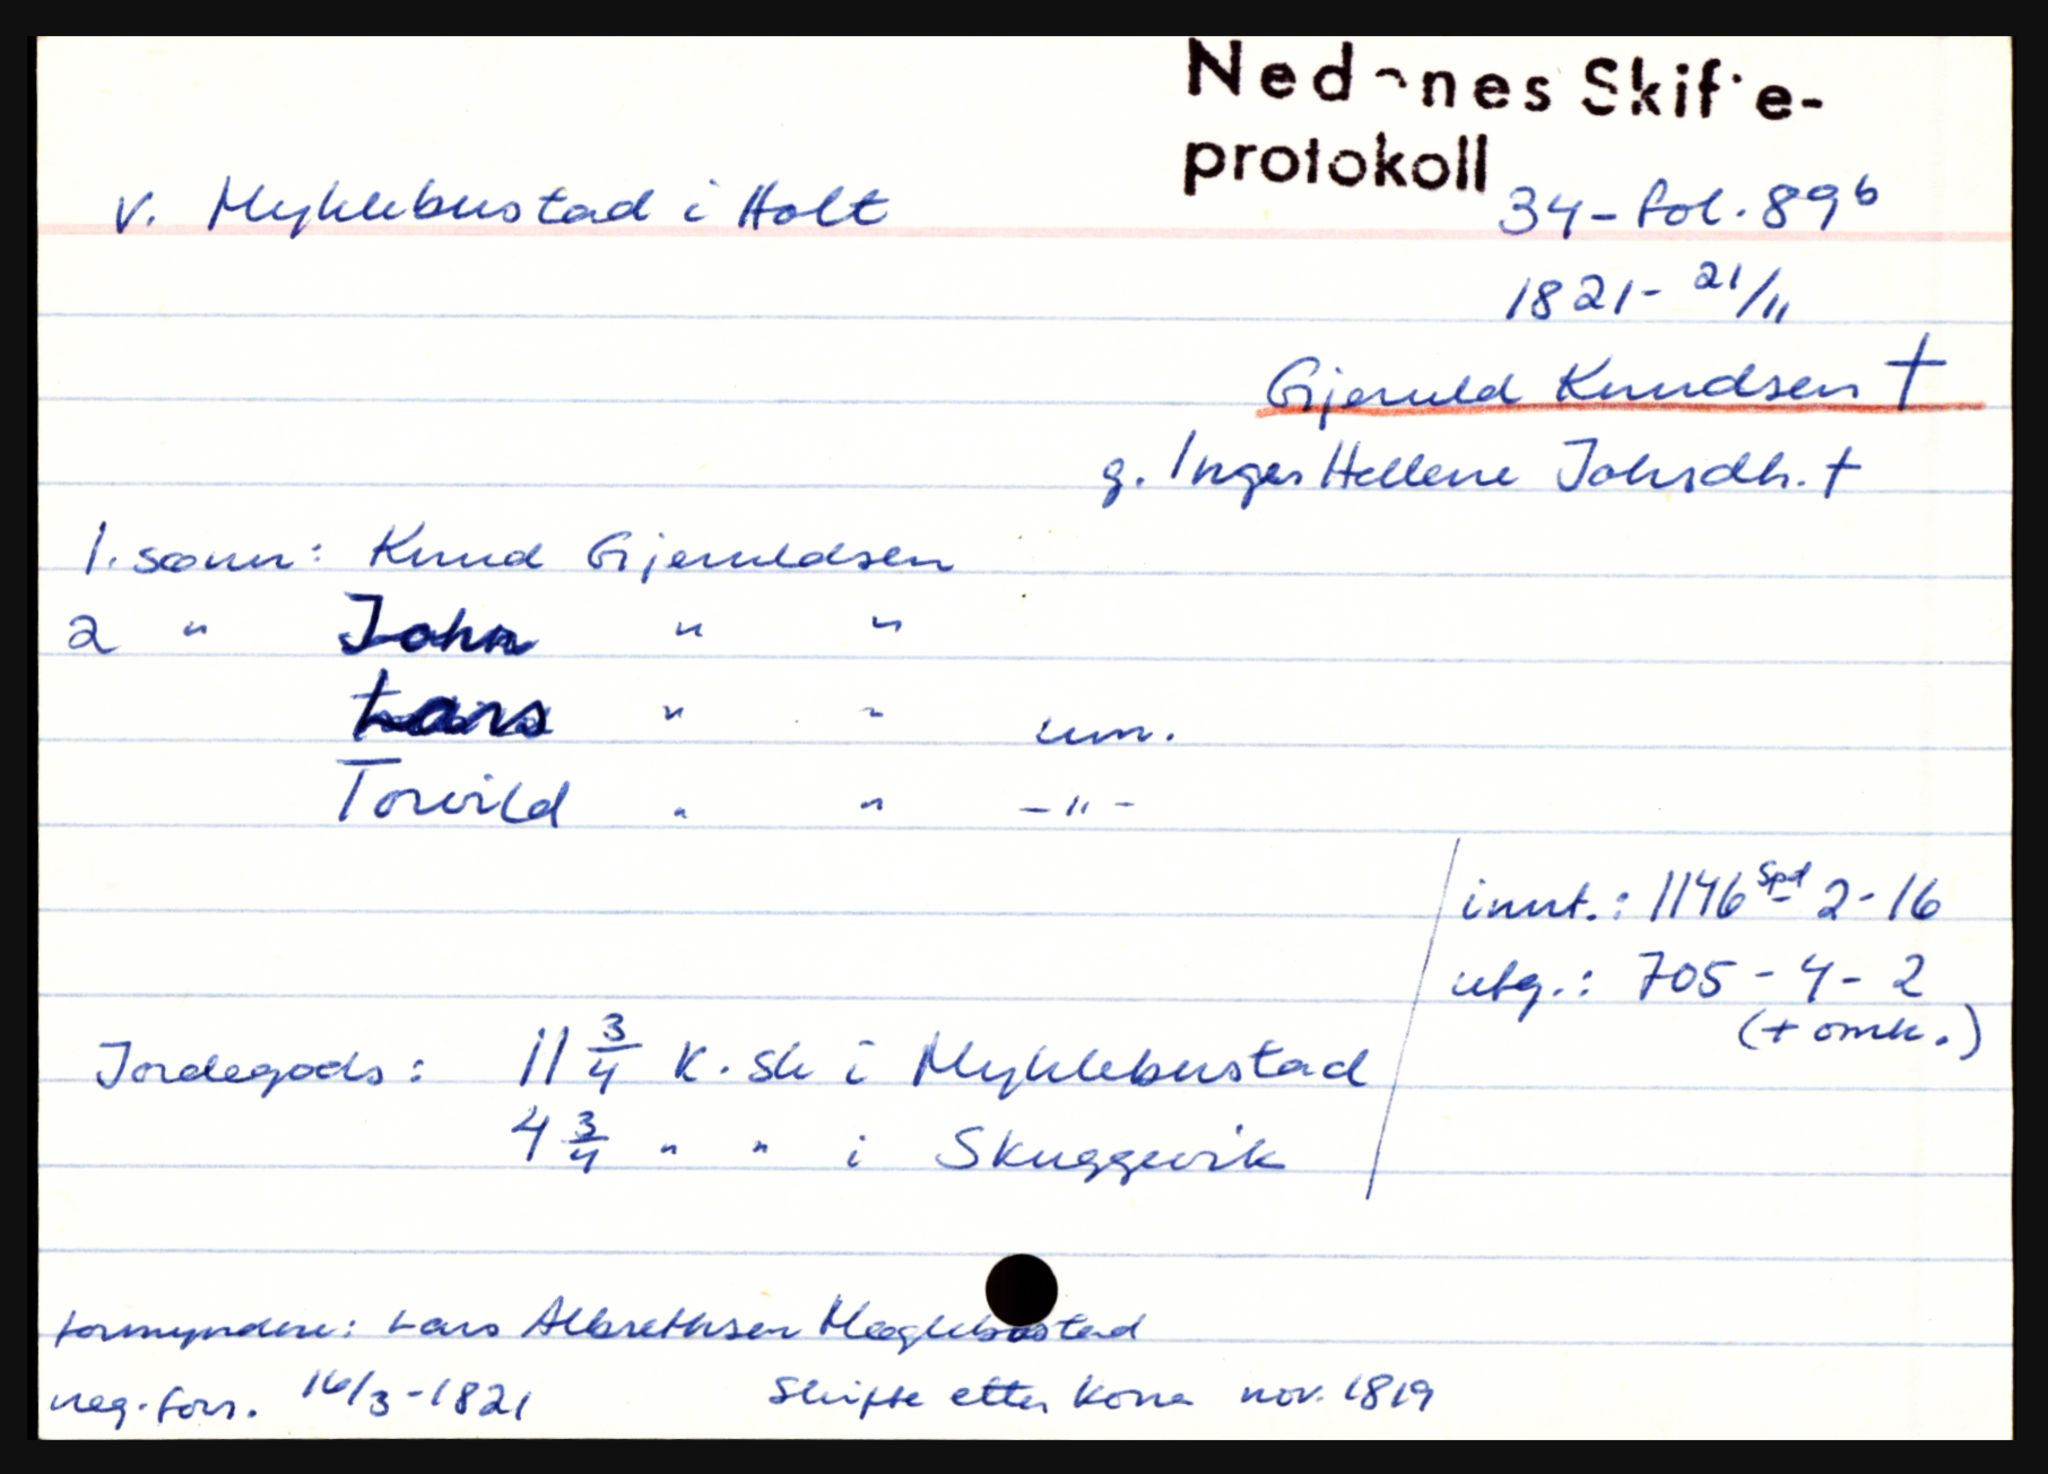 Nedenes Skifte-
protokoll
v. Myklebustad i Holt
34 - fol. 89b
1821 - 21/11
Gjeruld Knudsen †
g. Inger Hellene Johnsdh. †
1. sønn: Knud Gjeruldsen
2 " John " "
Lars " " um.
Torvild " " - " -
innt.: 1146 Spd 2 - 16
utg.: 705 - 4 - 2
(+ omk.)
Jordegods: 11 3/4 K. sk i Myklebustad
4 3/4 " " i Skuggevik
formyndere: Lars Albrethsen Møglebostad
reg. forr. 16/3 - 1821 Skifte etter kona nov. 1819